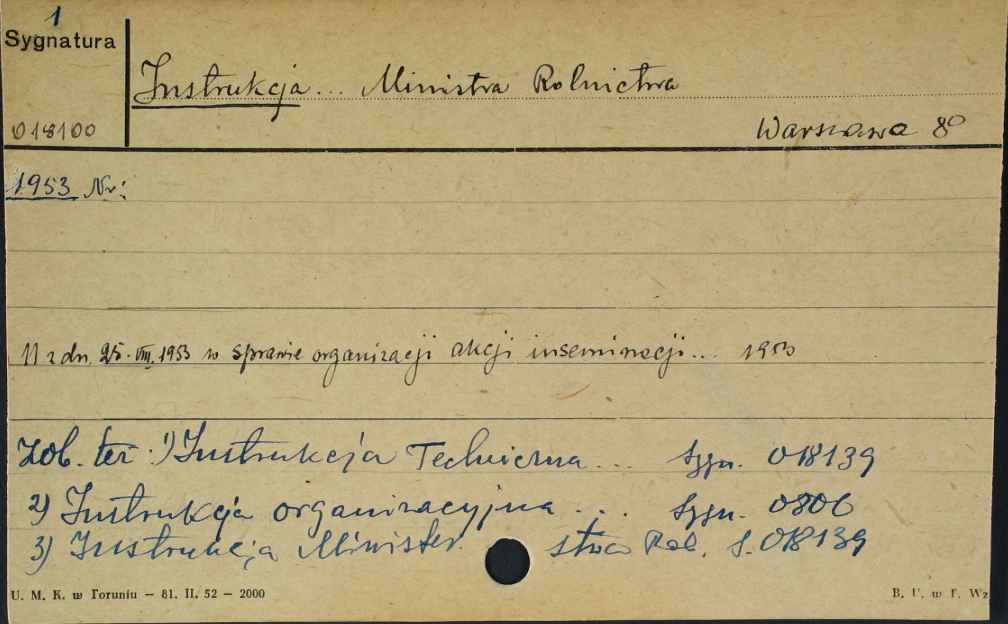 1
Sygnatura
Instrukcja... Ministra Rolnictwa
018100
Warszawa 8°
1953 Nr:
11 z dn. 25.VIII.1953 w sprawie organizacji akcji inseminacji... 1953
Zob. też: 1) Instrukcja Techniczna... Sygn. 018139
2) Instrukcja organizacyjna.... Sygn. 0806
3) Instrukcja Minister stwa Rol. S. 018139
U. M. K. w Toruniu — 81. II. 52 — 2000
B. U. w T. Wz